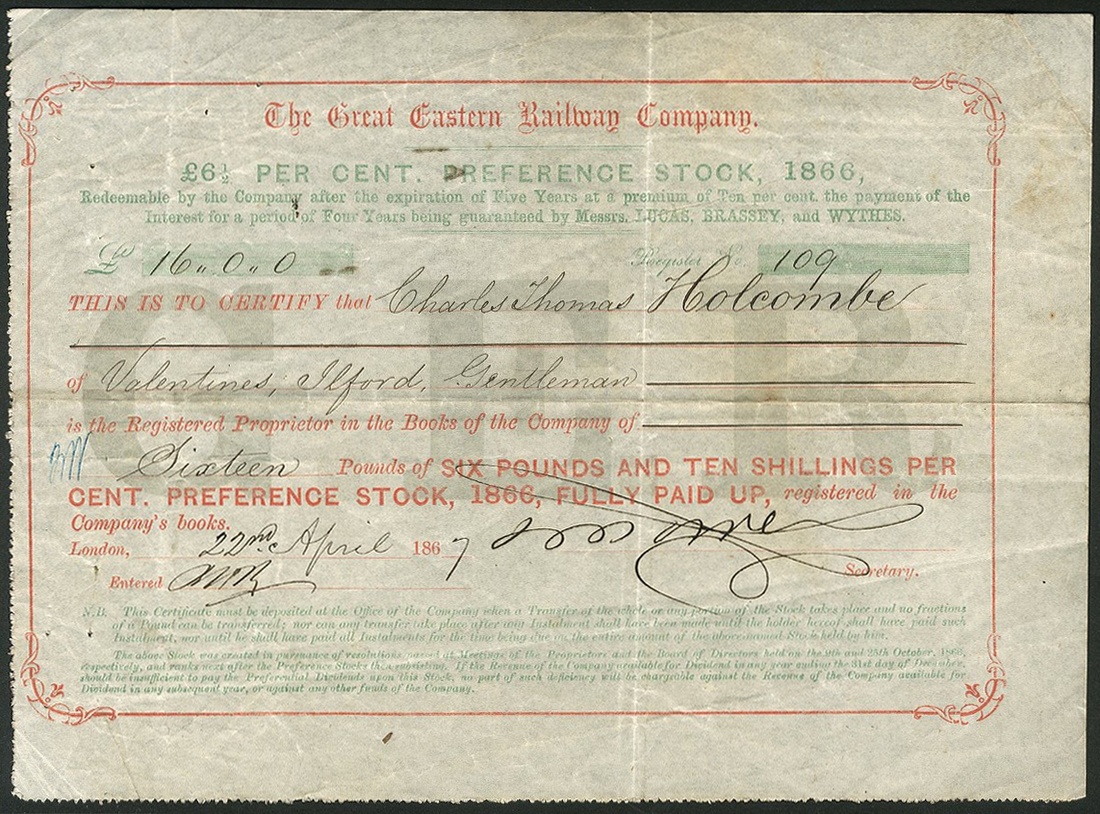 The Great Eastern Railway Company.
£6½ PER CENT. PREFERENCE STOCK, 1866,
Redeemable by the Company after the expiration of Five Years at a premium of Ten per cent. the payment of the
Interest for a period of Four Years being guaranteed by Messrs. LUCAS, BRASSEY, and WYTHES.
£ 16 " 0 " 0 Register No. 109
THIS IS TO CERTIFY that Charles Thomas Holcombe
of Valentines, Ilford, Gentleman
is the Registered Proprietor in the Books of the Company of
Sixteen Pounds of SIX POUNDS AND TEN SHILLINGS PER
CENT. PREFERENCE STOCK, 1866, FULLY PAID UP, registered in the
Company's books.
London, 22nd. April 1867
Entered Secretary.
N.B. This Certificate must be deposited at the Office of the Company when a Transfer of the whole or any portion of the Stock takes place and no fractions
of a Pound can be transferred; nor can any transfer take place after any Instalment shall have been made until the holder hereof shall have paid such
Instalment, nor until he shall have paid all Instalments for the time being due on the entire amount of the abovenamed Stock held by him.
The above Stock was created in pursuance of resolutions passed at Meetings of the Proprietors and the Board of Directors held on the 9th and 25th October, 1866,
respectively, and ranks next after the Preference Stocks then subsisting. If the Revenue of the Company available for Dividend in any year ending the 31st day of December,
should be insufficient to pay the Preferential Dividends upon this Stock, no part of such deficiency will be chargeable against the Revenue of the Company available for
Dividend in any subsequent year, or against any other funds of the Company.
G. E. R.